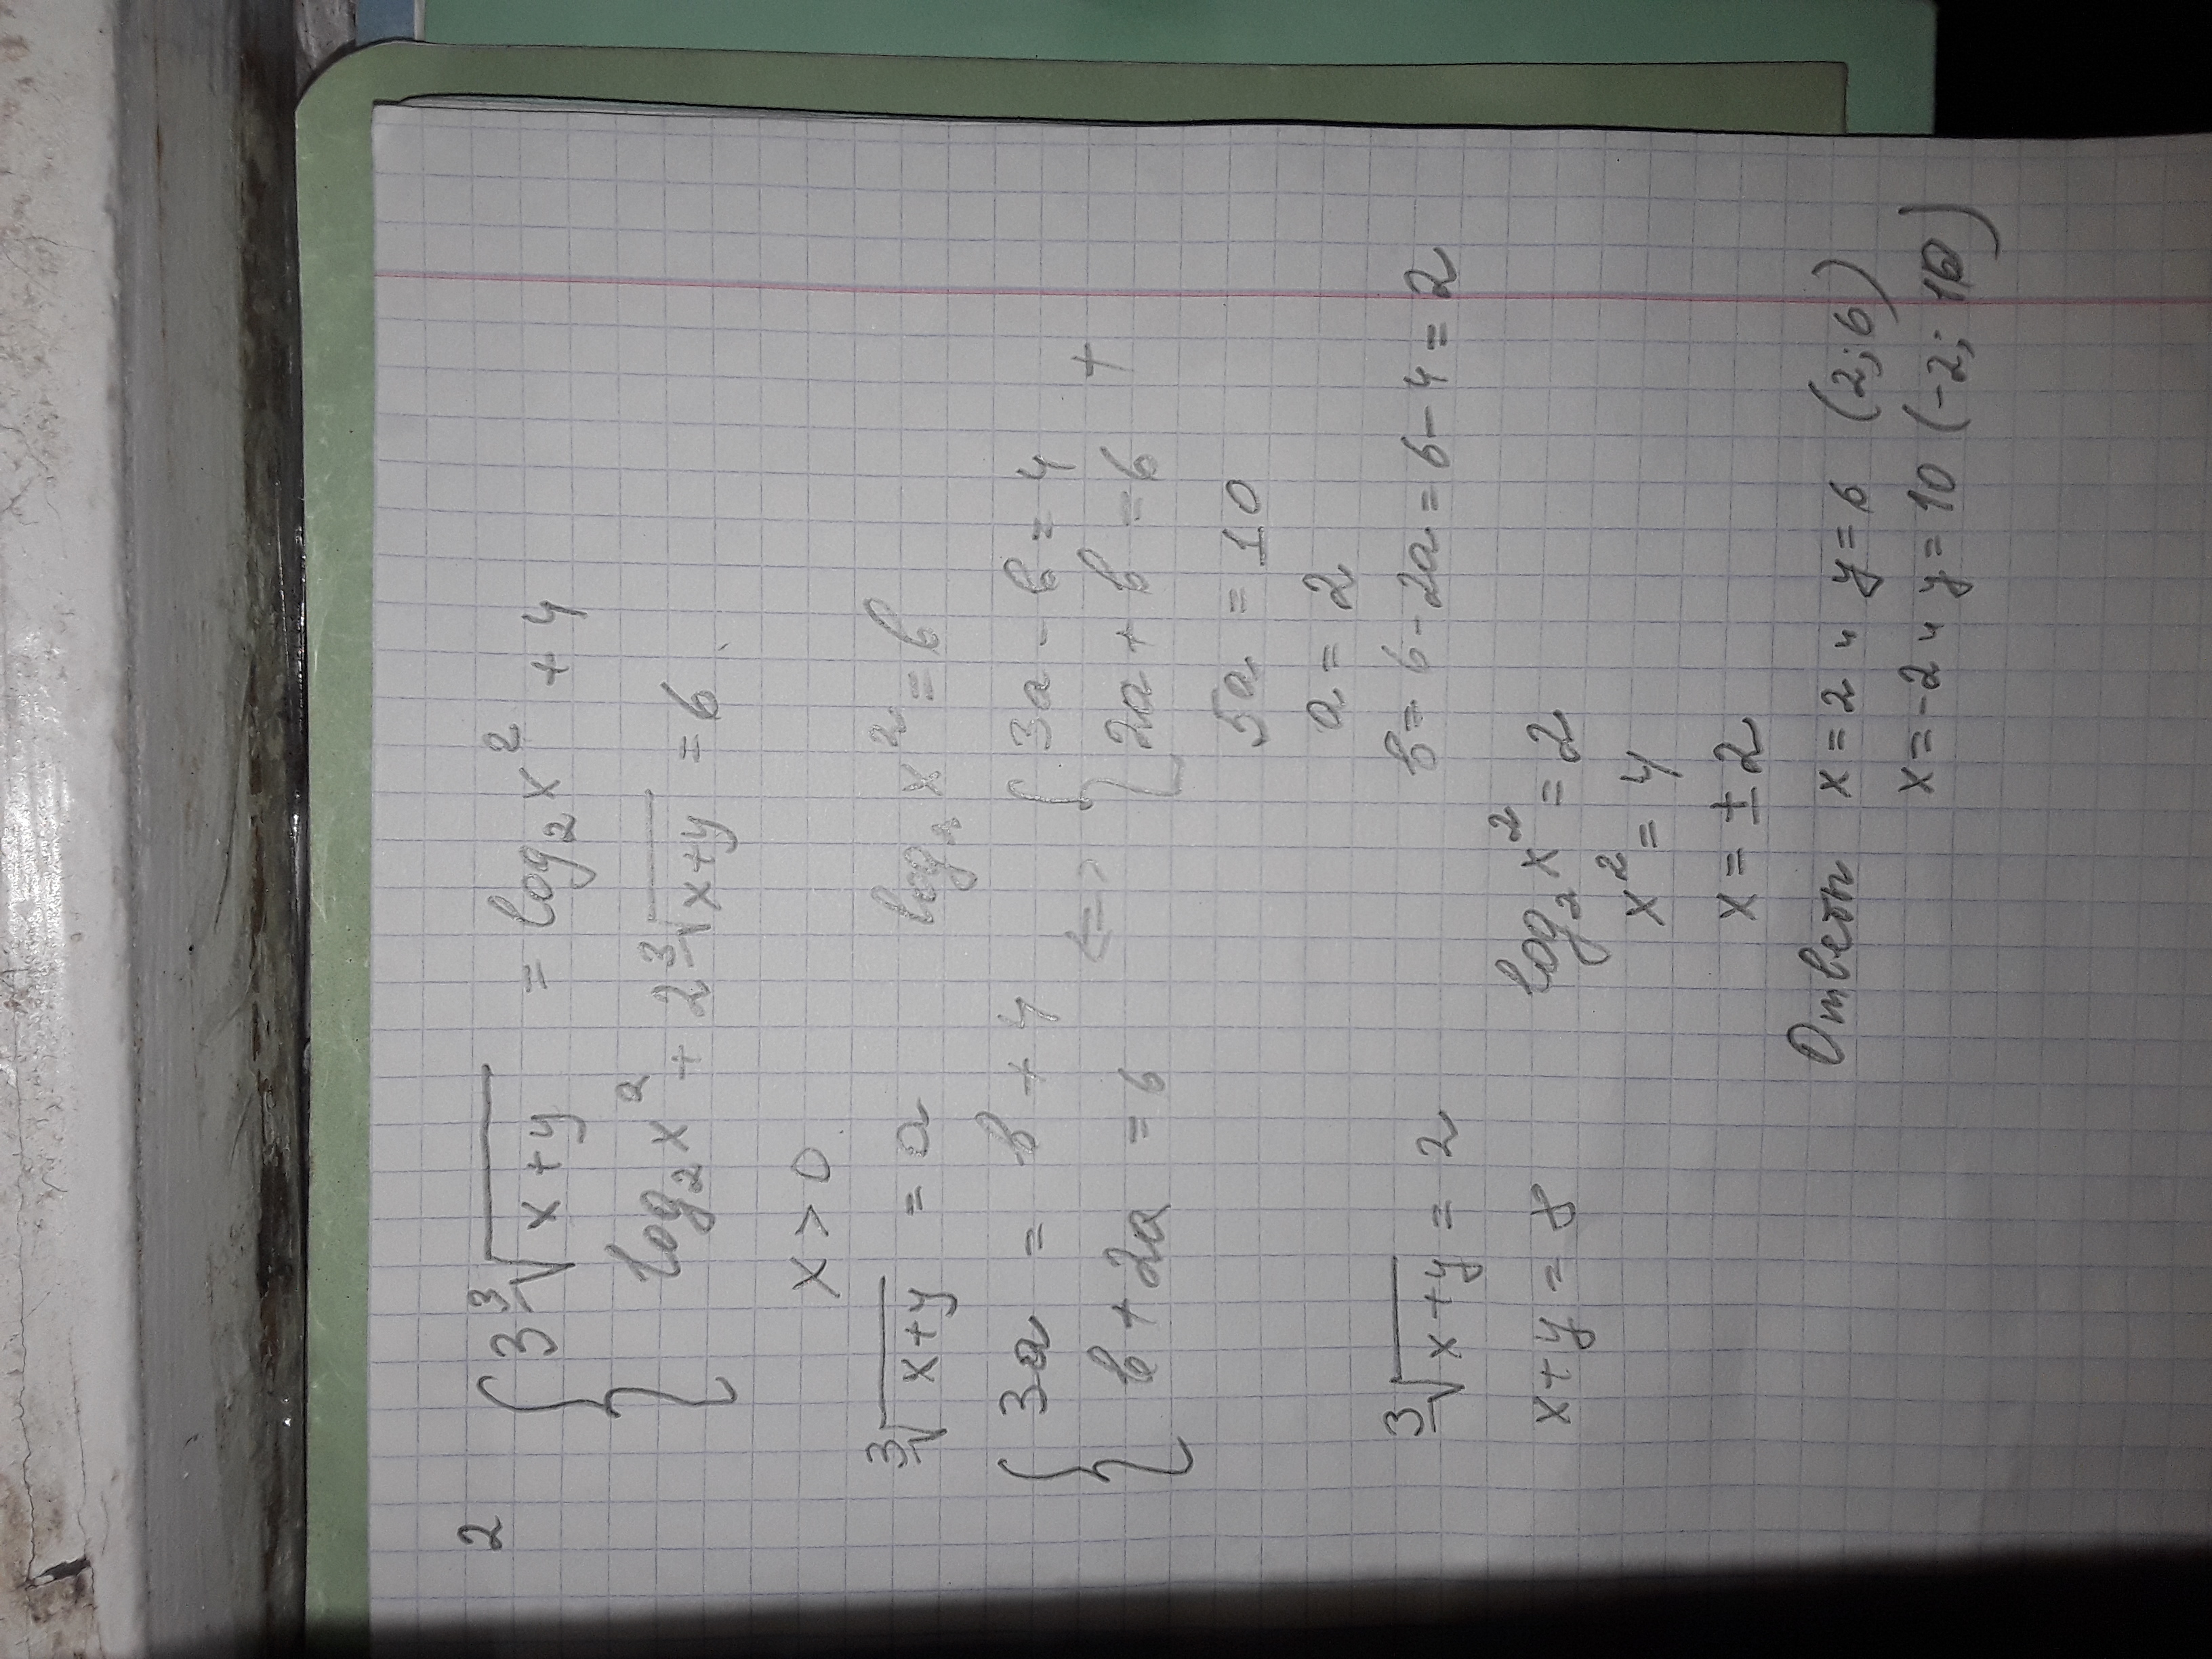 2
{ 3∛(x+y) = log₂x² + 4
log₂x² + 2∛(x+y) = 6
x > 0
∛(x+y) = a log₂x² = b
{ 3a = b + 4 <=> { 3a - b = 4
b + 2a = 6 2a + b = 6 +
5a = 10
a = 2
∛(x+y) = 2 b = 6 - 2a = 6 - 4 = 2
x + y = 8 log₂x² = 2
x² = 4
x = ± 2
Ответ x = 2 и y = 6 (2; 6)
x = -2 и y = 10 (-2; 10)